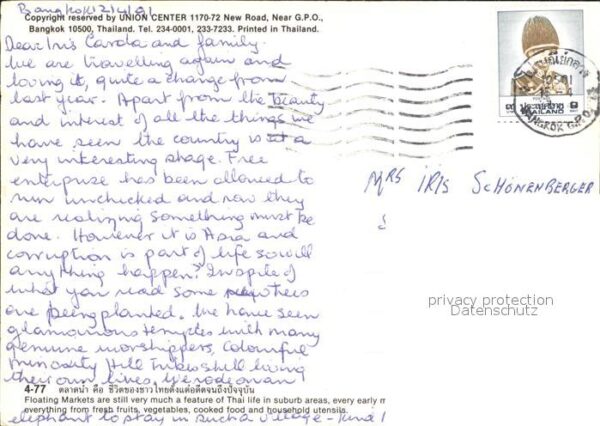 Bangkok 12/4/91
Copyright reserved by UNION CENTER 1170-72 New Road, Near G.P.O.,
Bangkok 10500, Thailand. Tel. 234-0001, 233-7233. Printed in Thailand.
Dear Iris Carda and family.
We are travelling again and
loving it, quite a change from
last year. Apart from the beauty
and interest of all the things we
have seen the country is at a
very interesting stage. Free
enterprize has been allowed to
run unchecked and now they
are realizing something must be
done. However it is Asia and
corruption is part of life so will
anything happen? Inspite of
what you read some trees
are being planted. We have seen
glamourous temples with many
genuine worshippers, colourful
minority Hill Tribes still living
their own lives, We rode on an
4-77 ตลาดน้ำ คือ ชีวิตของชาวไทยตั้งแต่อดีตจนถึงปัจจุบัน
Floating Markets are still very much a feature of Thai life in suburb areas, every early m
everything from fresh fruits, vegetables, cooked food and household utensils.
elephant to stay in such a village -
THAILAND
BANGKOK G.P.O.
MRS IRIS SCHÖNENBERGER
privacy protection
Datenschutz